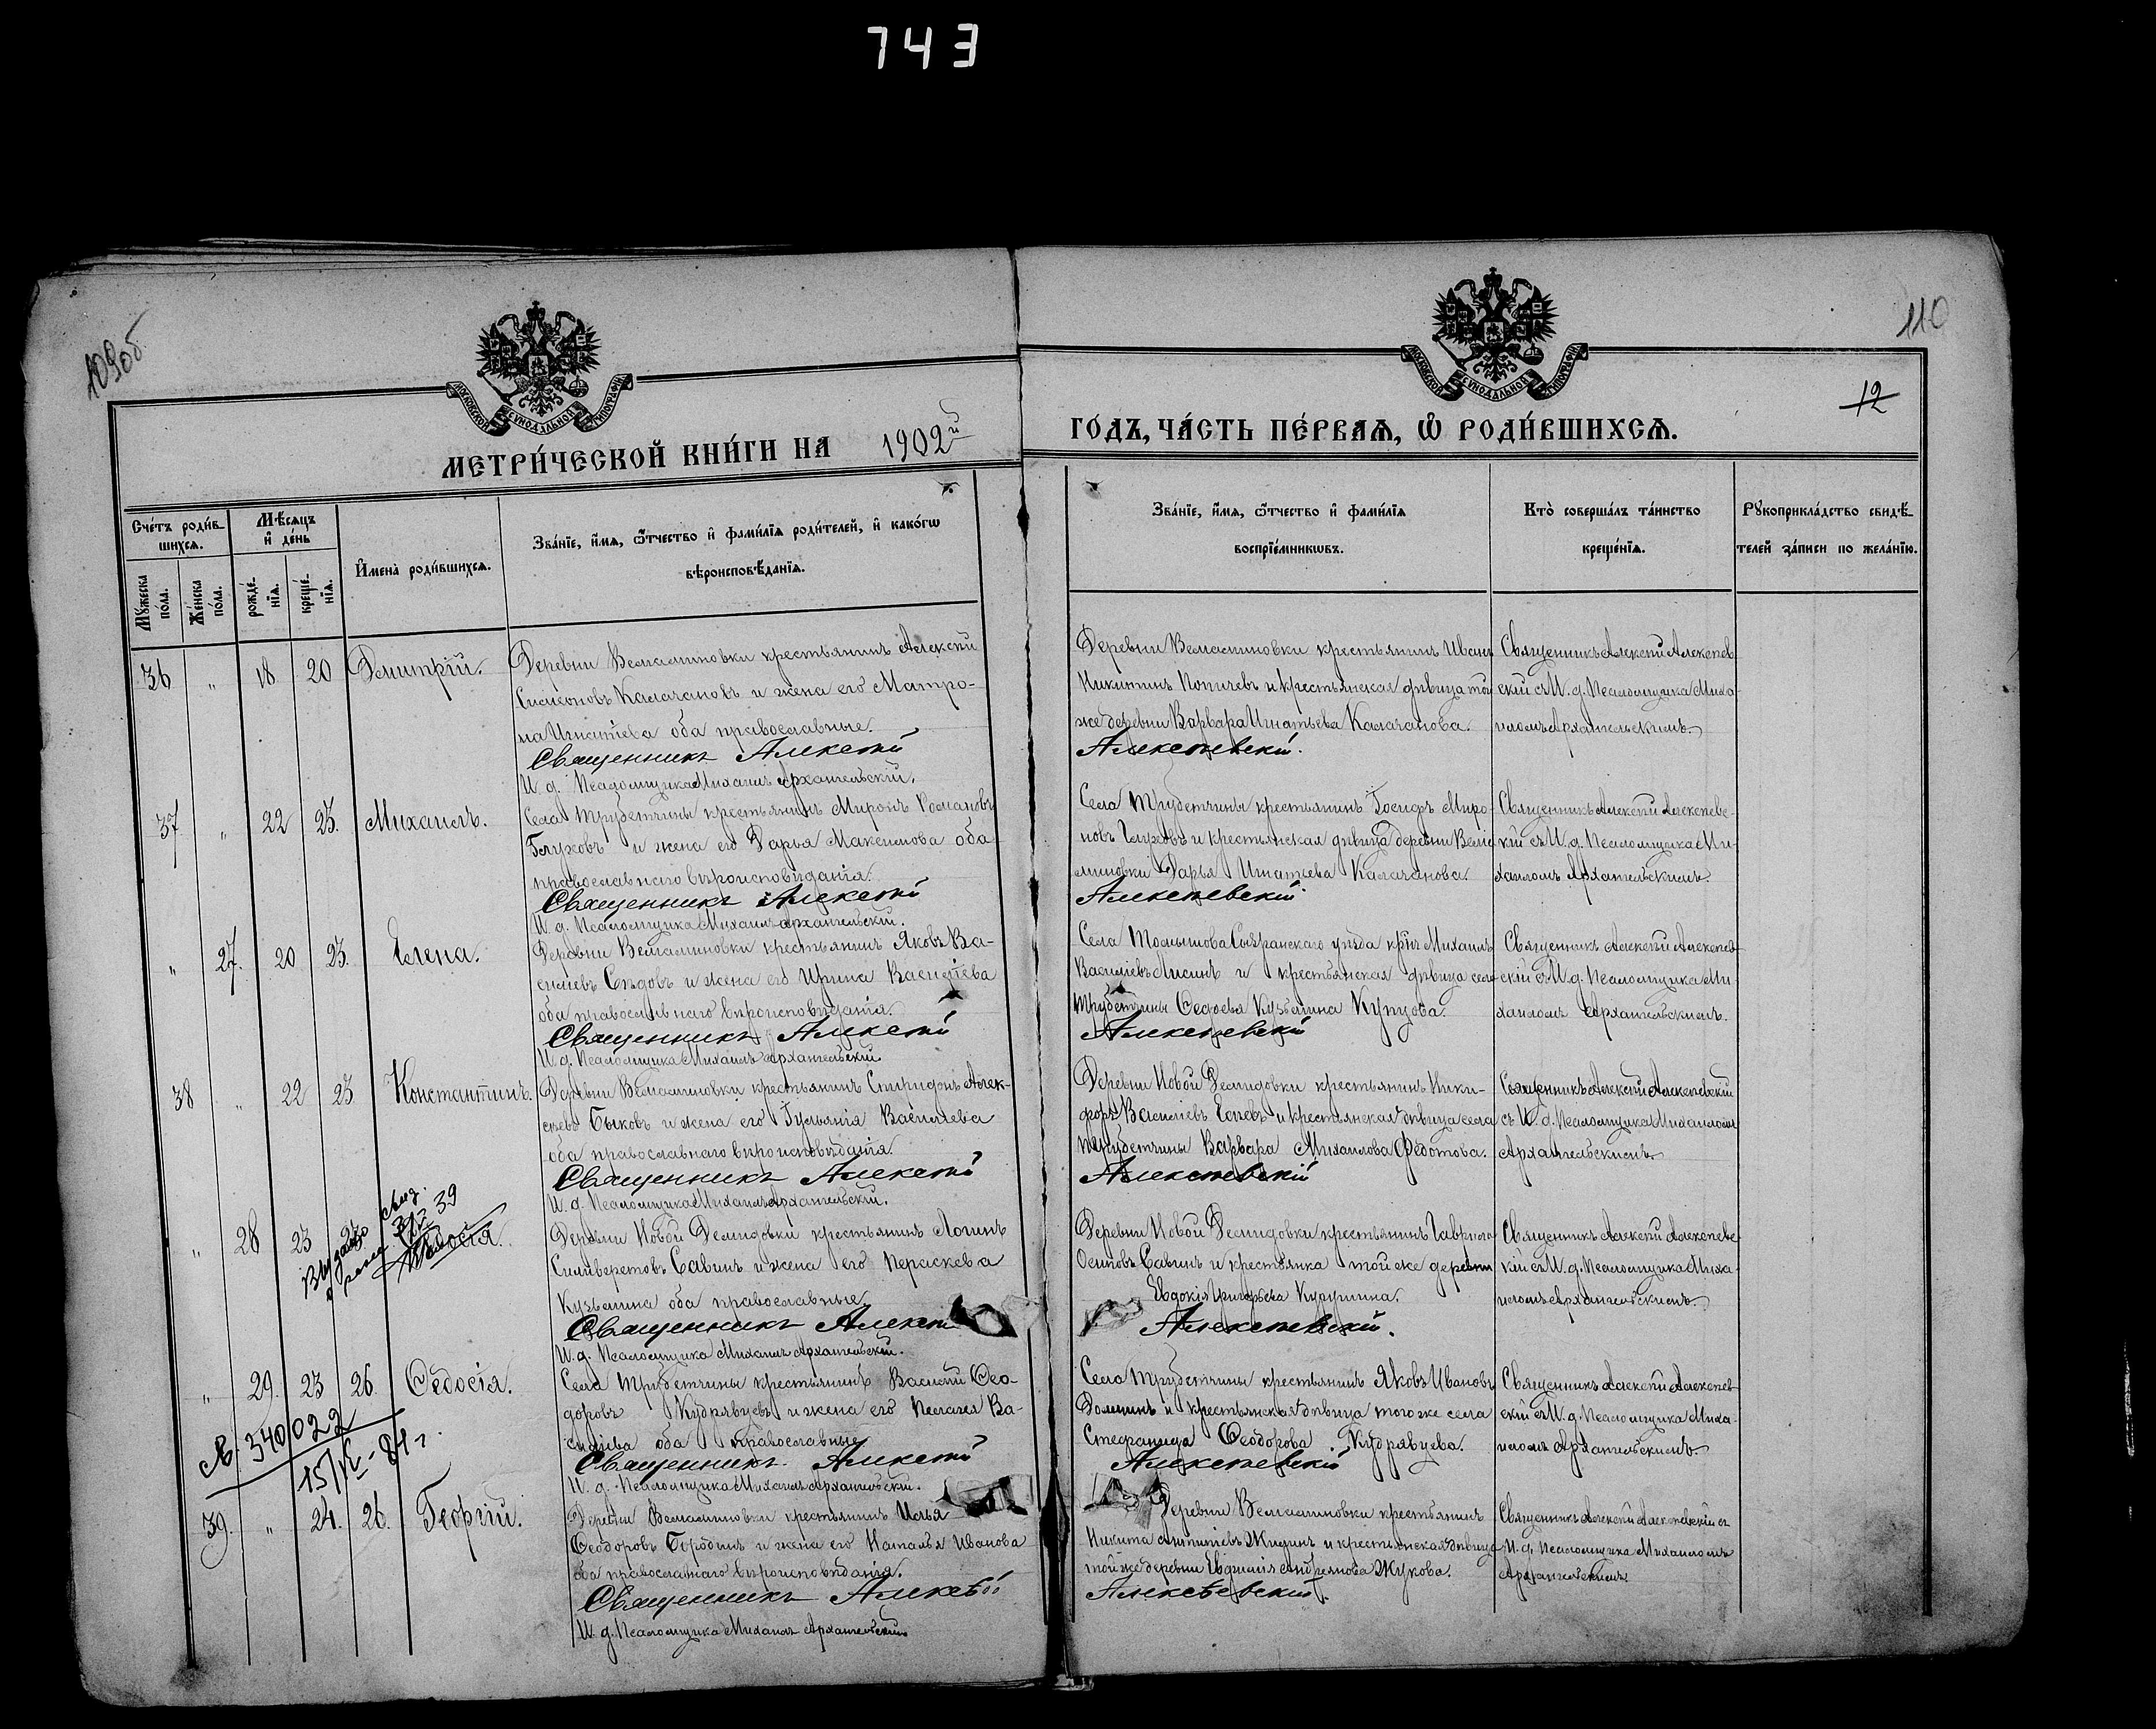 743
109об
110
12
МОСКОВСКОЙ СѴНОДАЛЬНОЙ ТИПОГРАФІИ
МОСКОВСКОЙ СѴНОДАЛЬНОЙ ТИПОГРАФІИ
МЕТРИ́ЧЕСКОЙ КНИ́ГИ НА 1902й
ГО́ДЪ, ЧА́СТЬ ПЕ́РВАѦ, Ѡ РОДИ́ВШИХСѦ.
Сче́тъ роди́в-
шихсѧ.
Мѣ́сѧцъ
и де́нь
Мꙋ́жеска
по́ла.
Же́нска
по́ла.
рожде́-
нїѧ.
креще́-
нїѧ.
И҆мена̀ роди́вшихсѧ.
Зва́нїе, и҆́мѧ, ѻ҆́тчество и҆ фами́лїѧ роди́телей, и҆ како́гѡ
вѣроисповѣ́данїѧ.
Зва́нїе, и҆́мѧ, ѻ҆́тчество и҆ фами́лїѧ
воспрїе́мникѡвъ.
Кто̀ соверша́лъ та́инство
креще́нїѧ.
Рꙋкоприкла́дство свидѣ́-
телей за́писи по жела́нїю.
36 " 18 20 Димитрій.
Деревни Вельяминовки крестьянинъ Алексѣй
Симеоновъ Калачановъ и жена его Матро-
на Игнатіева оба православные.
Священникъ Алексѣй
И. д. Псаломщика Михаилъ Архангельскій.
Деревни Вельяминовки крестьянинъ Иванъ
Никитинъ Попичевъ и крестьянская дѣвица той
же деревни Варвара Игнатьева Калачанова.
Алексѣевскій.
Священникъ Алексѣй Алексѣев-
скій съ И. д. Псаломщика Миха-
иломъ Архангельскимъ.
37 " 22 23. Михаилъ.
Села Трубетчины крестьянинъ Миронъ Романовъ
Глуховъ и жена его Дарья Максимова оба
православнаго вѣроисповѣданія.
Священникъ Алексѣй
И. д. Псаломщика Михаилъ Архангельскій.
Села Трубетчины крестьянинъ Іосифъ Миро-
новъ Глуховъ и крестьянская дѣвица деревни Велья-
миновки Дарья Игнатьева Калачанова
Алексѣевскій.
Священникъ Алексѣй Алексѣевс-
кій съ И. д. Псаломщика Ми-
хаиломъ Архангельскимъ.
" 27. 20 23. Елена.
Деревни Вельяминовки крестьянинъ Яковъ Ва-
силіевъ Сѣдовъ и жена его Ирина Василіева
оба православнаго вѣроисповѣданія.
Священникъ Алексѣй
И. д. Псаломщика Михаилъ Архангельскій
Села Томышова Сызранскаго уѣзда крѣ Михаилъ
Василіевъ Лисинъ и крестьянская дѣвица села
Трубетчины Федосья Кузьмина Купцова.
Алексѣевскій
Священникъ Алексѣй Алексѣев-
скій съ И. д. Псаломщика Ми-
хаиломъ Архангельскимъ.
38 " 22 23 Константинъ.
Деревни Вельяминовки крестьянинъ Спиридонъ Алек-
сѣевъ Быковъ и жена его Гульянія Василіева
оба православнаго вѣроисповѣданія.
Священникъ Алексѣй
И. д. Псаломщика Михаилъ Архангельскій.
Деревни Новой Демидовки крестьянинъ Ники-
форъ Василіевъ и крестьянская дѣвица села
Трубетчины Варвара Михаилова Федотова.
Алексѣевскій
Священникъ Алексѣй Алексѣевскій
съ И. д. Псаломщика Михаиломъ
Архангельскимъ.
" 28 23 23 Федосія.
39
Деревни Новой Демидовки крестьянинъ Логинъ
Силиверстовъ Савинъ и жена его Параскева
Кузьмина оба православные
Священникъ Алексѣй
И. д. Псаломщика Михаилъ Архангельскій.
Деревни Новой Демидовки крестьянинъ Гавріилъ
Осиповъ Савинъ и крестьянка той же деревни
Евдокія Григорьева
Алексѣевскій.
Священникъ Алексѣй Алексѣевс-
кій съ И. д. Псаломщика Миха-
иломъ Архангельскимъ.
" 29. 23 26. Федосія.
Св. 340022
15/IV-84 г.
Села Трубетчины крестьянинъ Василій Фео-
доровъ Кудрявцевъ и жена его Пелагея Ва-
силіева оба православные
Священникъ Алексѣй
И. д. Псаломщика Михаилъ Архангельскій.
Села Трубетчины крестьянинъ Яковъ Ивановъ
Доминъ и крестьянская дѣвица того же села
Стефанида Феодорова Кудрявцева.
Алексѣевскій
Священникъ Алексѣй Алексѣев-
скій съ И. д. Псаломщика Миха-
иломъ Архангельскимъ.
39. " 24. 26. Георгій.
Деревни Вельяминовки крестьянинъ Илья
Феодоровъ Бородинъ и жена его Наталья Иванова
оба православнаго вѣроисповѣданія.
Священникъ Алексѣй
И. д. Псаломщика Михаилъ Архангельскій
Деревни Вельяминовки крестьянинъ
Никита Антипіевъ Жиринъ и крестьянская дѣвица
той же деревни Евфимія Андреянова Жукова.
Алексѣевскій.
Священникъ Алексѣй Алексѣевскій съ
И. д. Псаломщика Михаиломъ
Архангельскимъ